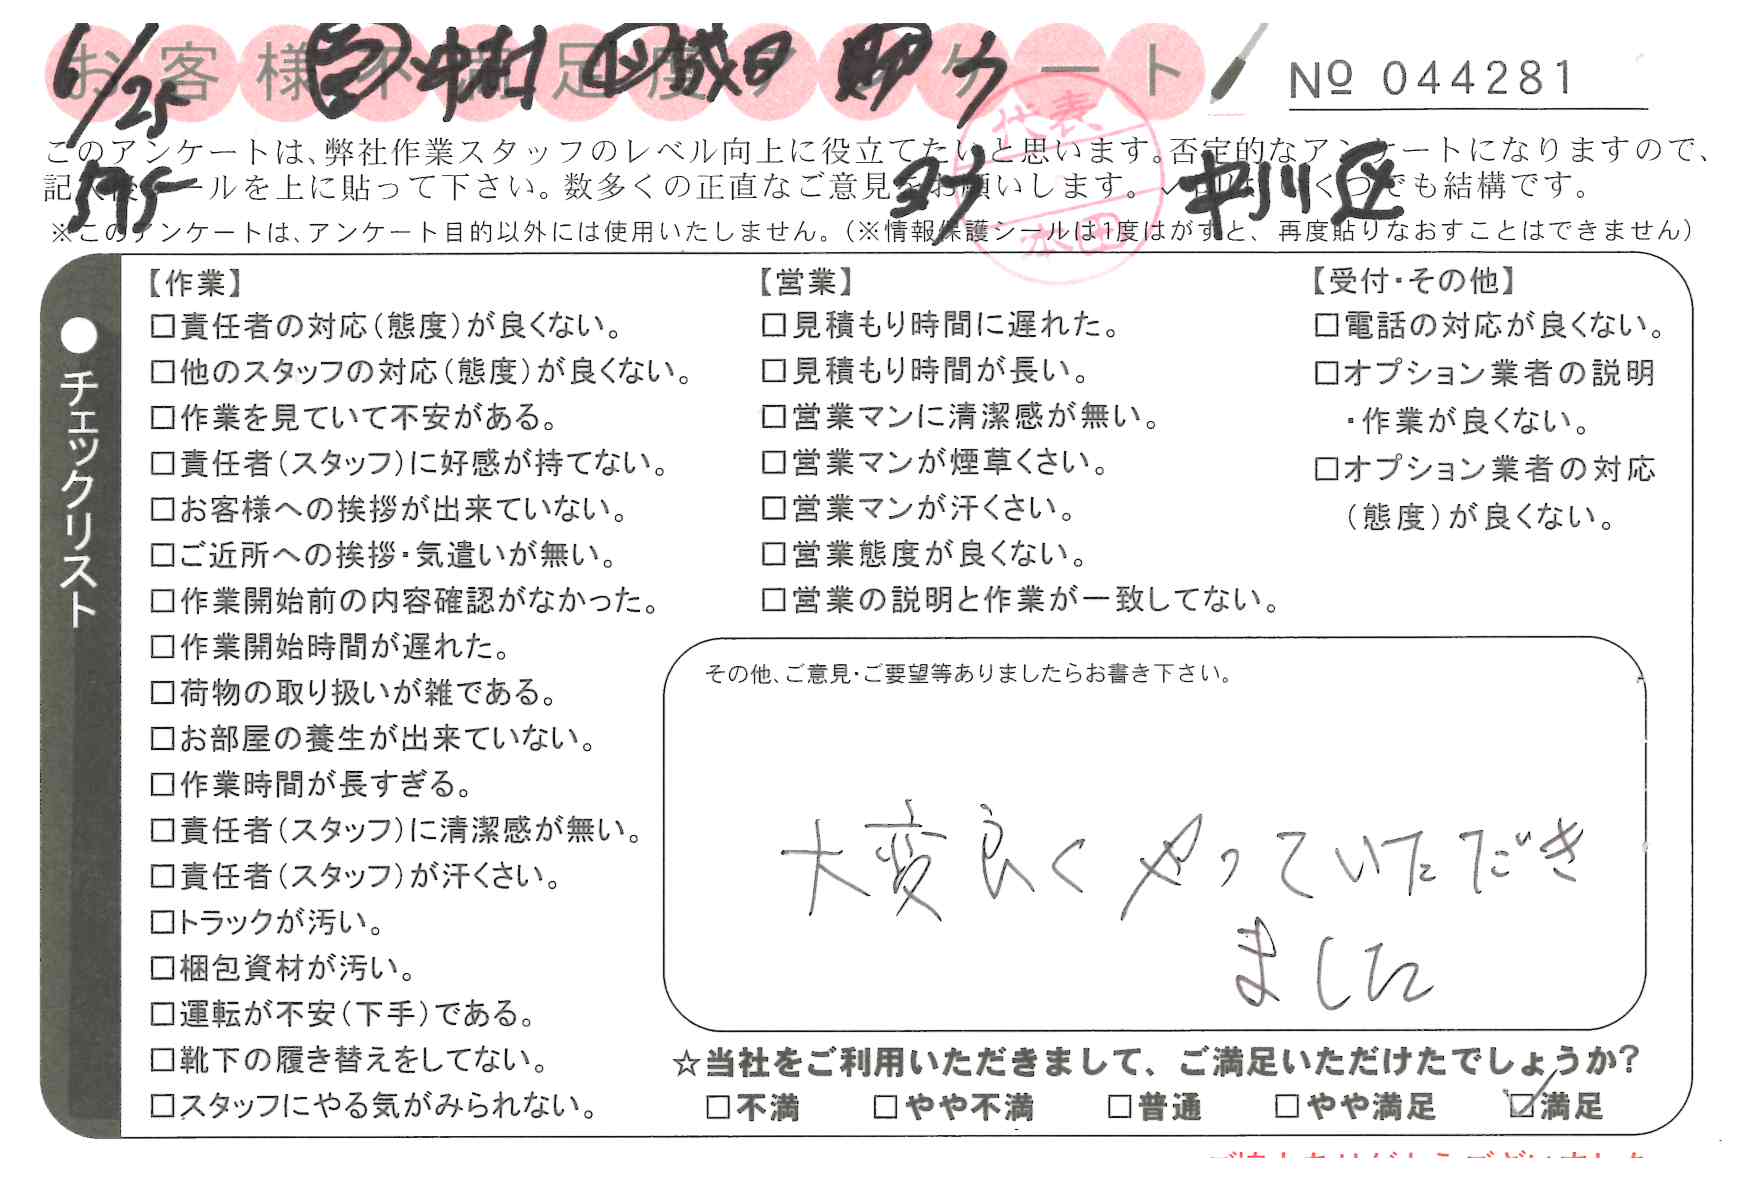 お客様不満足度アンケート
6/25
№ 044281
このアンケートは、弊社作業スタッフのレベル向上に役立てたいと思います。否定的なアンケートになりますので、
記入後シールを上に貼って下さい。数多くの正直なご意見をお願いします。✓印はいくつでも結構です。
595 中川区
※このアンケートは、アンケート目的以外には使用いたしません。(※情報保護シールは1度はがすと、再度貼りなおすことはできません)
代表
本田
●チェックリスト
【作業】
□責任者の対応(態度)が良くない。
□他のスタッフの対応(態度)が良くない。
□作業を見ていて不安がある。
□責任者(スタッフ)に好感が持てない。
□お客様への挨拶が出来ていない。
□ご近所への挨拶・気遣いが無い。
□作業開始前の内容確認がなかった。
□作業開始時間が遅れた。
□荷物の取り扱いが雑である。
□お部屋の養生が出来ていない。
□作業時間が長すぎる。
□責任者(スタッフ)に清潔感が無い。
□責任者(スタッフ)が汗くさい。
□トラックが汚い。
□梱包資材が汚い。
□運転が不安(下手)である。
□靴下の履き替えをしてない。
□スタッフにやる気がみられない。
【営業】
□見積もり時間に遅れた。
□見積もり時間が長い。
□営業マンに清潔感が無い。
□営業マンが煙草くさい。
□営業マンが汗くさい。
□営業態度が良くない。
□営業の説明と作業が一致してない。
【受付・その他】
□電話の対応が良くない。
□オプション業者の説明
・作業が良くない。
□オプション業者の対応
(態度)が良くない。
その他、ご意見・ご要望等ありましたらお書き下さい。
大変良くやっていただき
ました
☆当社をご利用いただきまして、ご満足いただけたでしょうか?
□不満 □やや不満 □普通 □やや満足 ☑満足